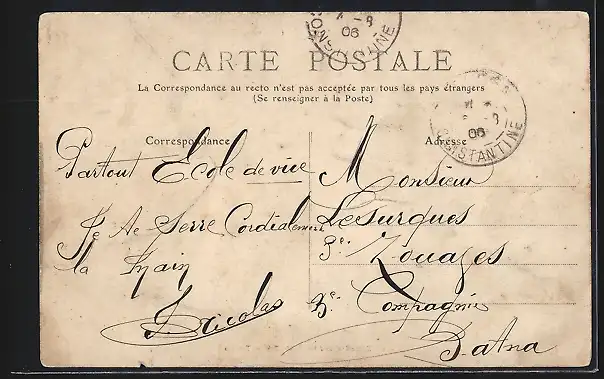 CONSTANTINE
06
CARTE POSTALE
La Correspondance au recto n'est pas acceptée par tous les pays étrangers
(Se renseigner à la Poste)
CONSTANTINE
06
Correspondance
Partout Ecole de vice
Je te Serre Cordialement
la Main
Nicolas
Adresse
Monsieur
Lesurques
3e Zouaves
Compagnie
Batna